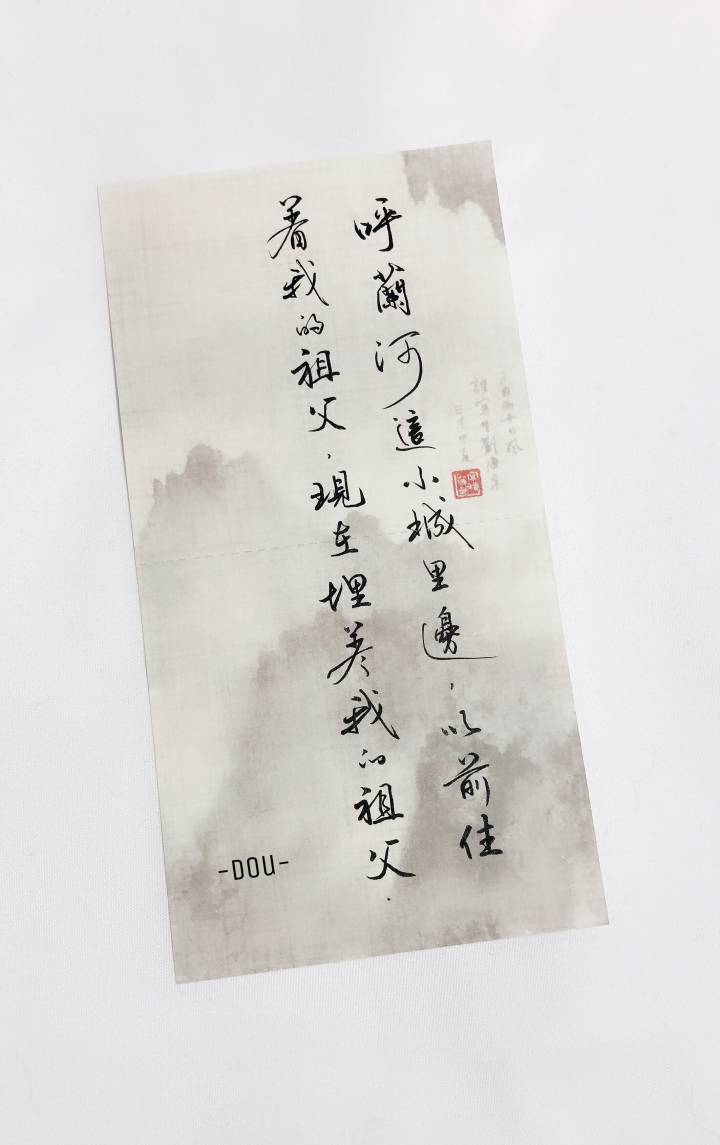 呼蘭河這小城里邊，以前住
着我的祖父，現在埋着我的祖父．
-DOU-